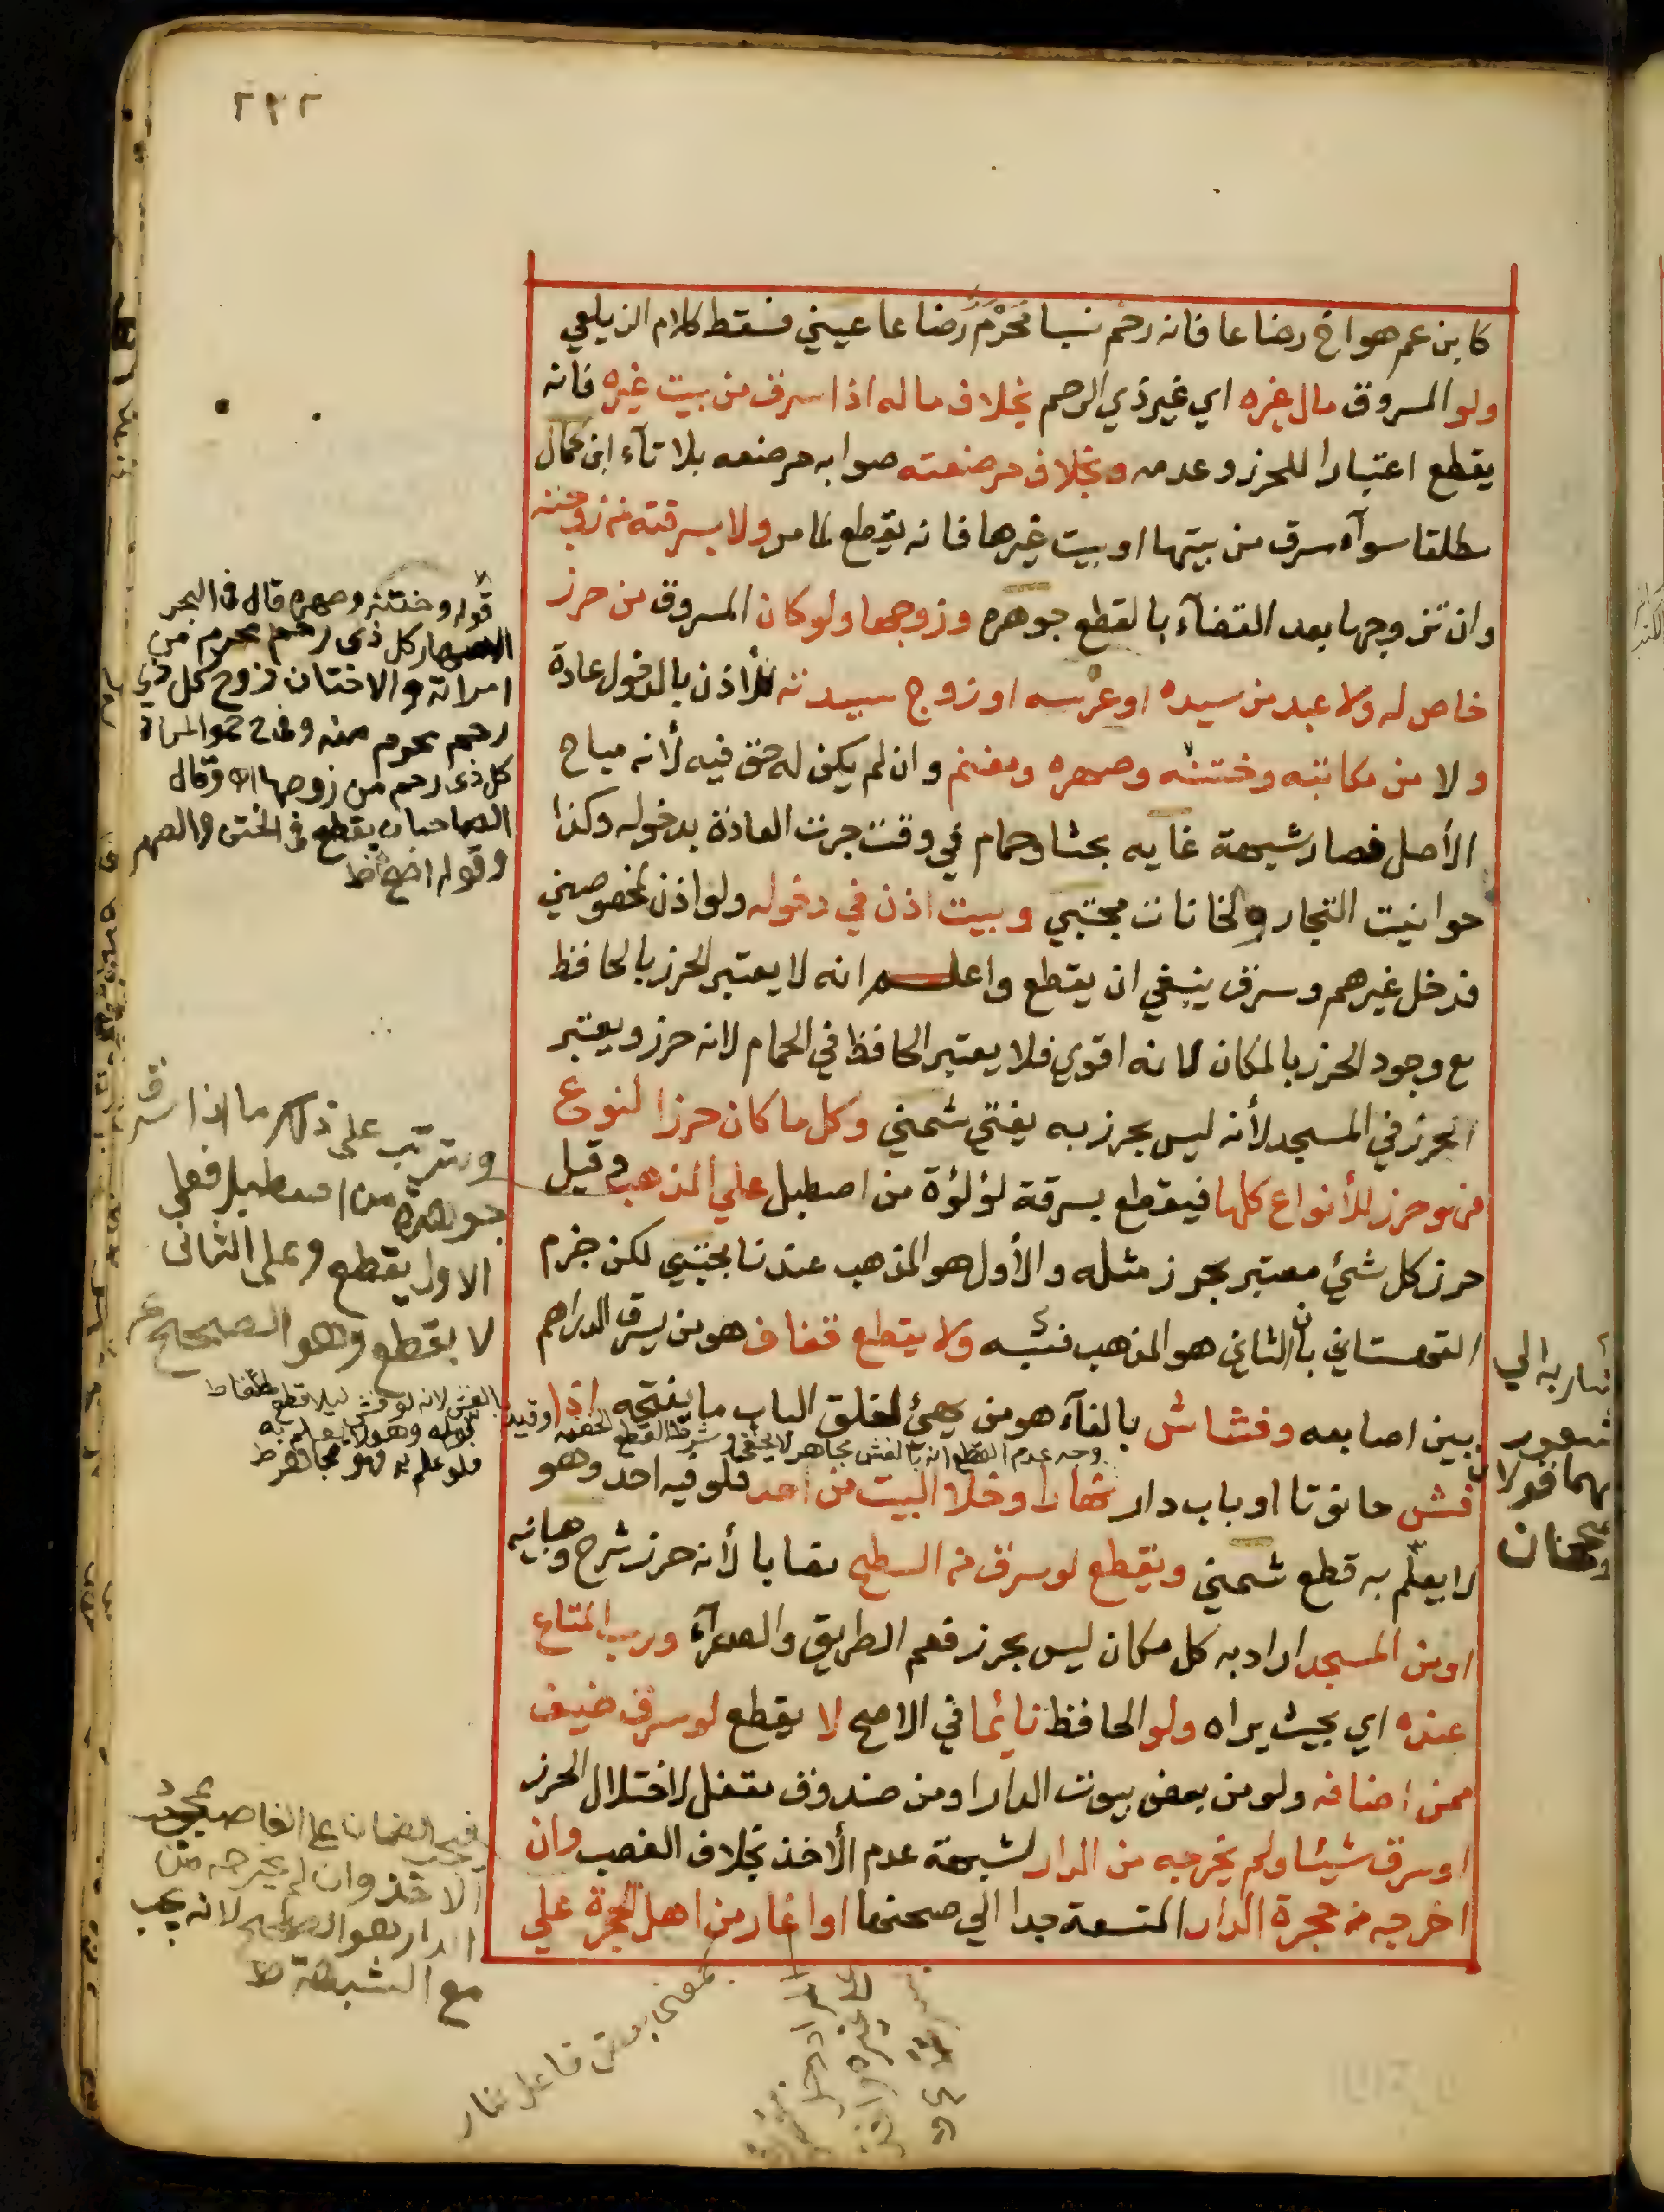 ٢٣٢
كابن عم هو اخ رضاعا فانه رحم نسبا مَحْرَم رضاعا عيني فسقط كلام الزيلعي
ولو المسروق مال غيره اي غير ذي الرحم بخلاف ماله اذا سرق من بيت غيره فانه
يقطع اعتبارا للحرز وعدمه وبخلاف مرضعته صوابه مرضعه بلا تاء ابن كمال
مطلقا سوآء سرق من بيتها او بيت غيرها فانه يقطع لما مر ولا بسرقته من زوجته
وان تزوجها بعد القضآء بالقطع جوهره وزوجها ولو كان المسروق من حرز
خاص له ولا عبد من سيده او عرسه او زوج سيدته للأذن بالدخول عادة
ولا من مكاتبه وختنه وصهره ومغنم وان لم يكن له حق فيه لأنه مباح
الأصل فصار شبهة غايه بحثا وحمام في وقت جرت العادة بدخوله وكذا
حوانيت التجار والخانات مجتبي وبيت اذن في دخوله ولو اذن لمخصوصين
فدخل غيرهم وسرق ينبغي ان يقطع واعلم انه لا يعتبر الحرز بالحافظ
مع وجود الحرز بالمكان لانه اقوي فلا يعتبر الحافظ في الحمام لانه حرز ويعتبر
الحرز في المسجد لأنه ليس بحرز به يفتي شمني وكل ما كان حرزا لنوع
فهو حرز للأنواع كلها فيقطع بسرقة لؤلؤة من اصطبل علي المذهب وقيل
حرز كل شئ معتبر بحرز مثله والأول هو المذهب عندنا مجتبي لكن جزم
القهستاني بأن الثاني هو المذهب فتنبه ولا يقطع قفاف هو من يسرق الدراهم
بين اصابعه وفشاش بالفآء هو من يهئ لغلق الباب ما يفتحه اذا
فش حانوتا او باب دار نهارا وخلا البيت من احد فلو فيه احد وهو
لا يعلم به قطع شمني ويقطع لو سرق من السطح نصابا لأنه حرز شرح وهبانيه
او من المسجد اراد به كل مكان ليس بحرز فعم الطريق والصحرآء ورب المتاع
عنده اي بحيث يراه ولو الحافظ نائما في الاصح لا يقطع لو سرق ضيف
ممن اضافه ولو من بعض بيوت الدار او من صندوق مقفل لاختلال الحرز
او سرق شيئا ولم يخرجه من الدار لشبهة عدم الأخذ بخلاف الغصب وان
اخرجه من حجرة الدار المتسعة جدا الي صحنها او اغار من اهل الحجرة علي
قوله وختنه وصهره قال في البحر
الاصهار كل ذي رحم محرم من
امراته والاختان زوج كل ذي
رحم محرم منه
كل ذي رحم من زوجها اه وقال
الصاحبان يقطع في الختن والصهر
ويترتب على ذلك ما اذا سرق
جوهرة من اصطبل فعلى
الاول يقطع وعلى الثاني
لا يقطع وهو الصحيح
بالفش لانه لو فش ليلا قطع
قوله وهو لا يعلم به
فلو علم به فهو مجاهر ط
وجه عدم القطع انه بالفش مجاهر لا مختفي وشرط القطع الخفيه
اشار به الي
فيجب الضمان على الغاصب بمجرد
الاخذ وان لم يخرجه من
الدار هو الصحيح لانه يجب
مع الشبهة ط